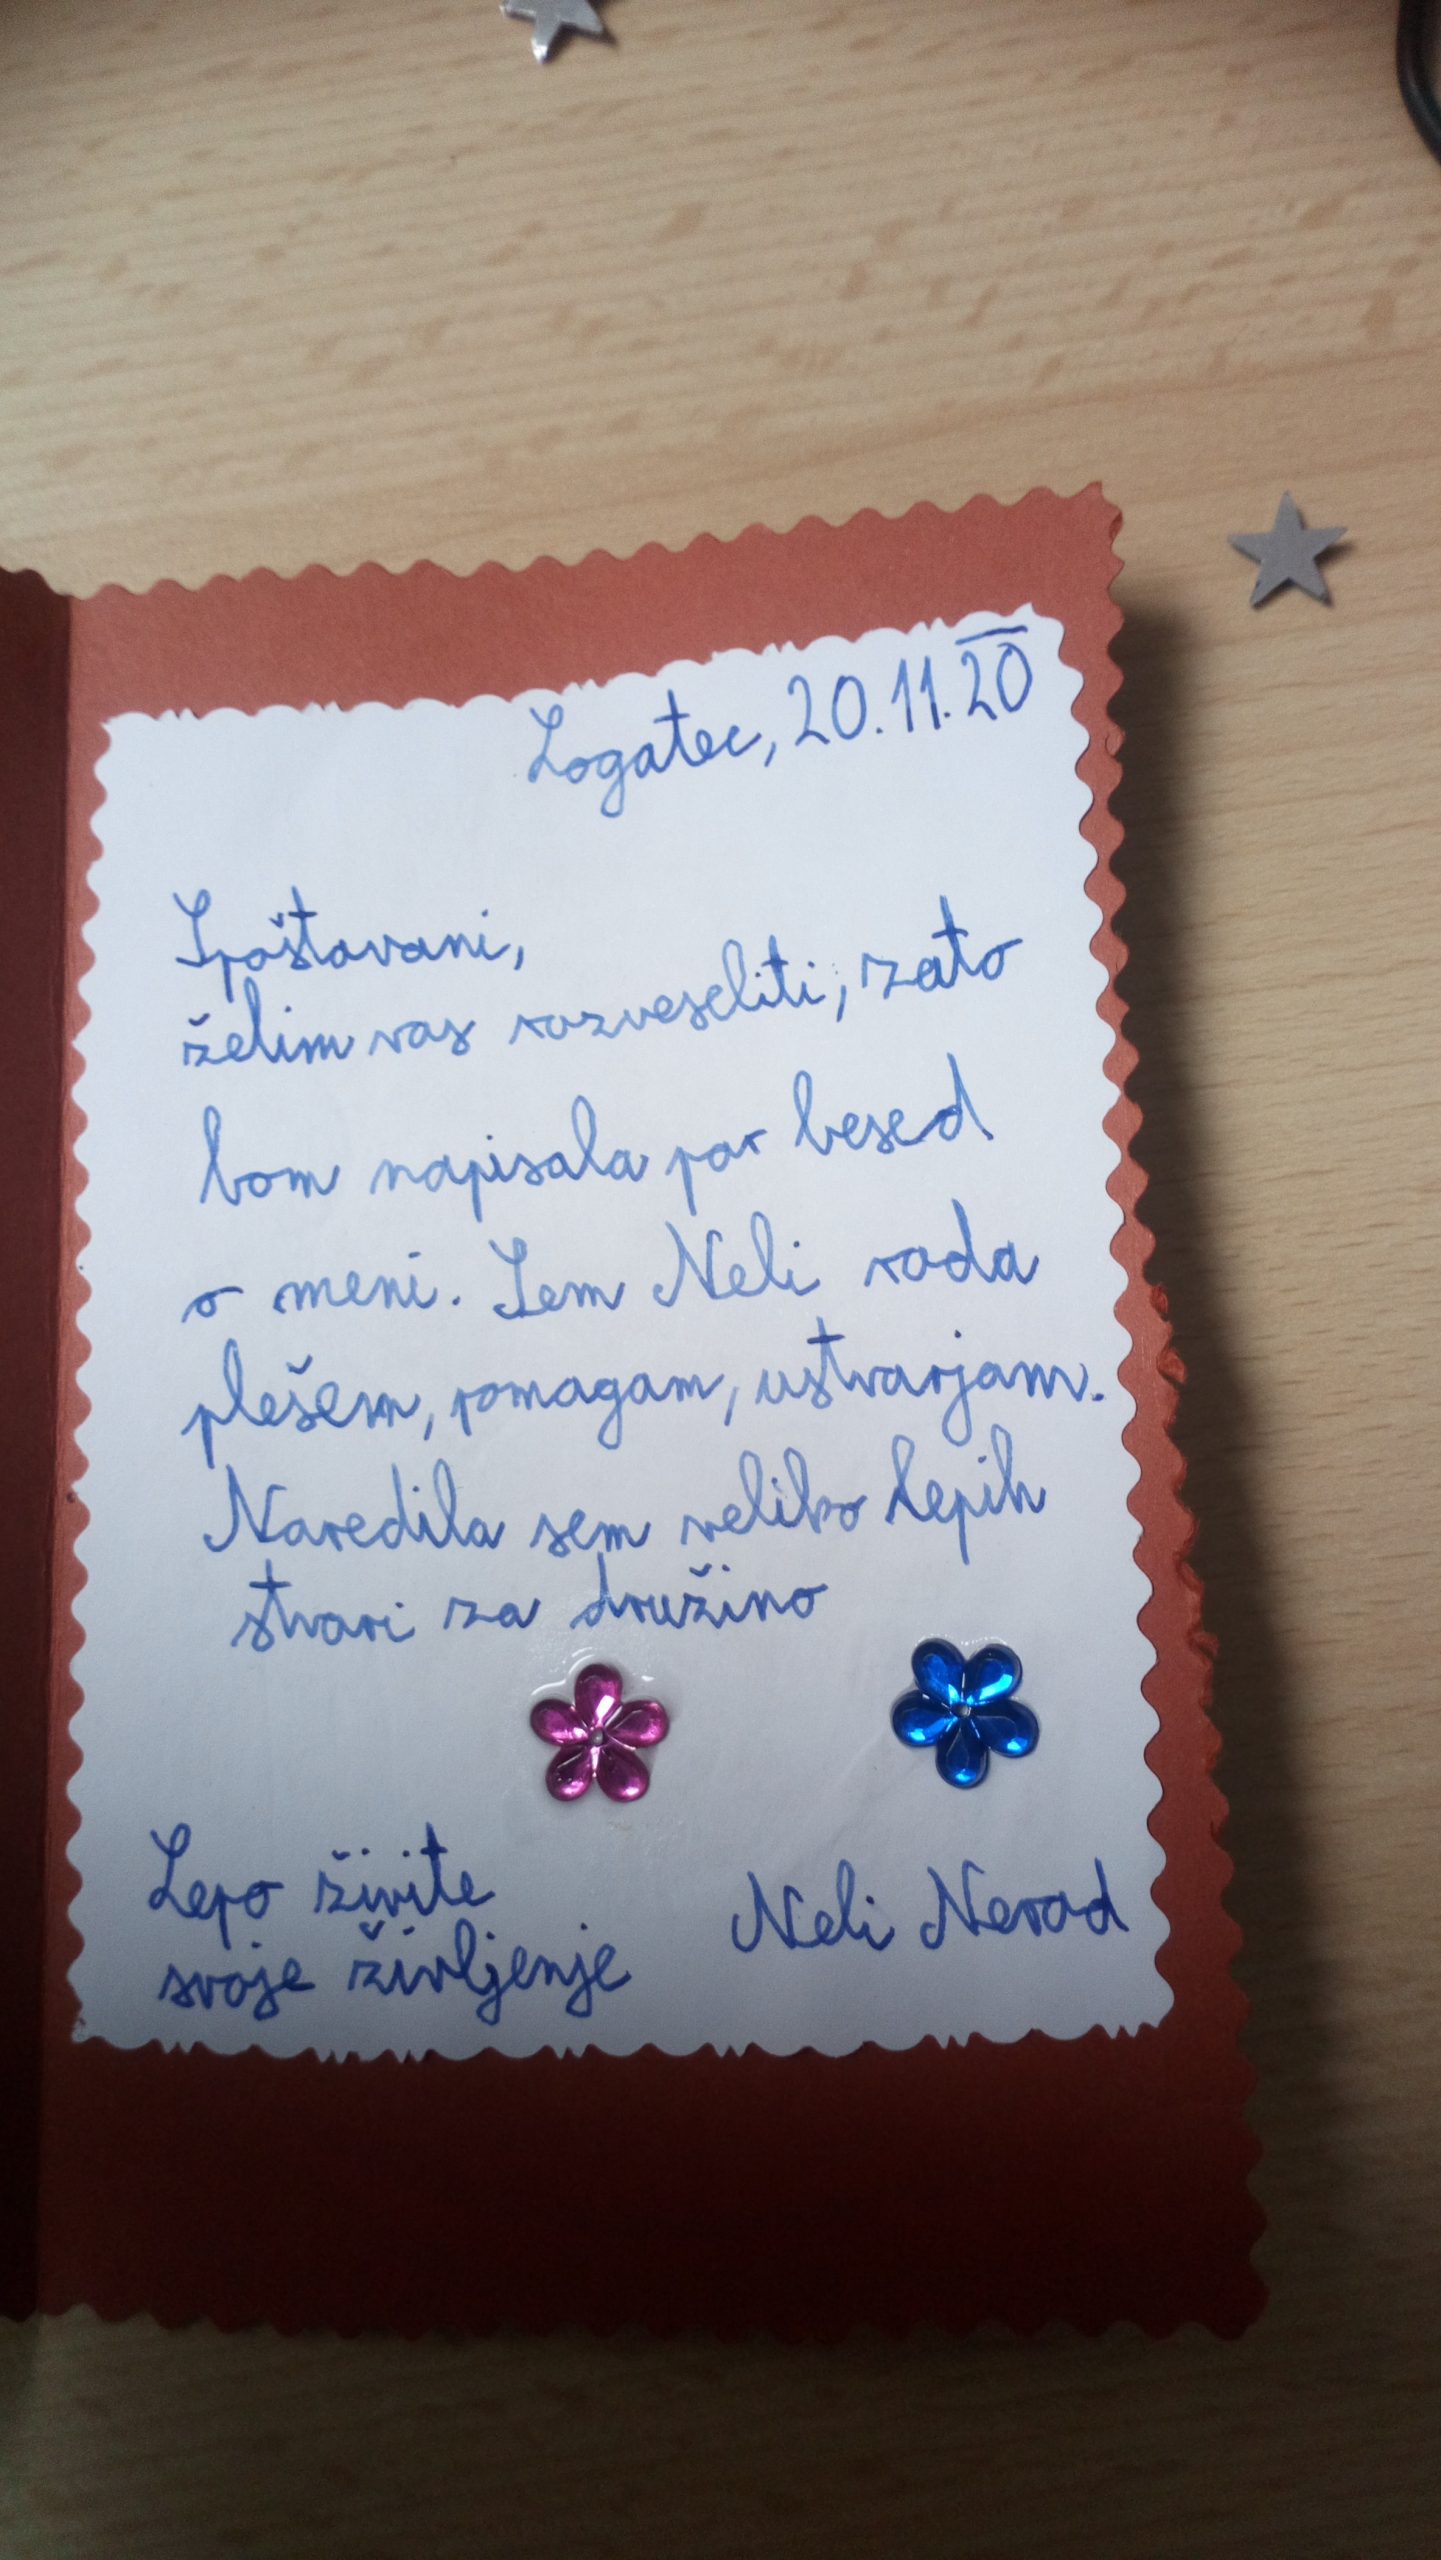 Logatec, 20.11.20
Spoštovani,
želim vas razveseliti, zato
bom napisala par besed
o meni. Sem Neli rada
plešem, pomagam, ustvarjam.
Naredila sem veliko lepih
stvari za družino
Lepo živite
svoje življenje
Neli Nerad